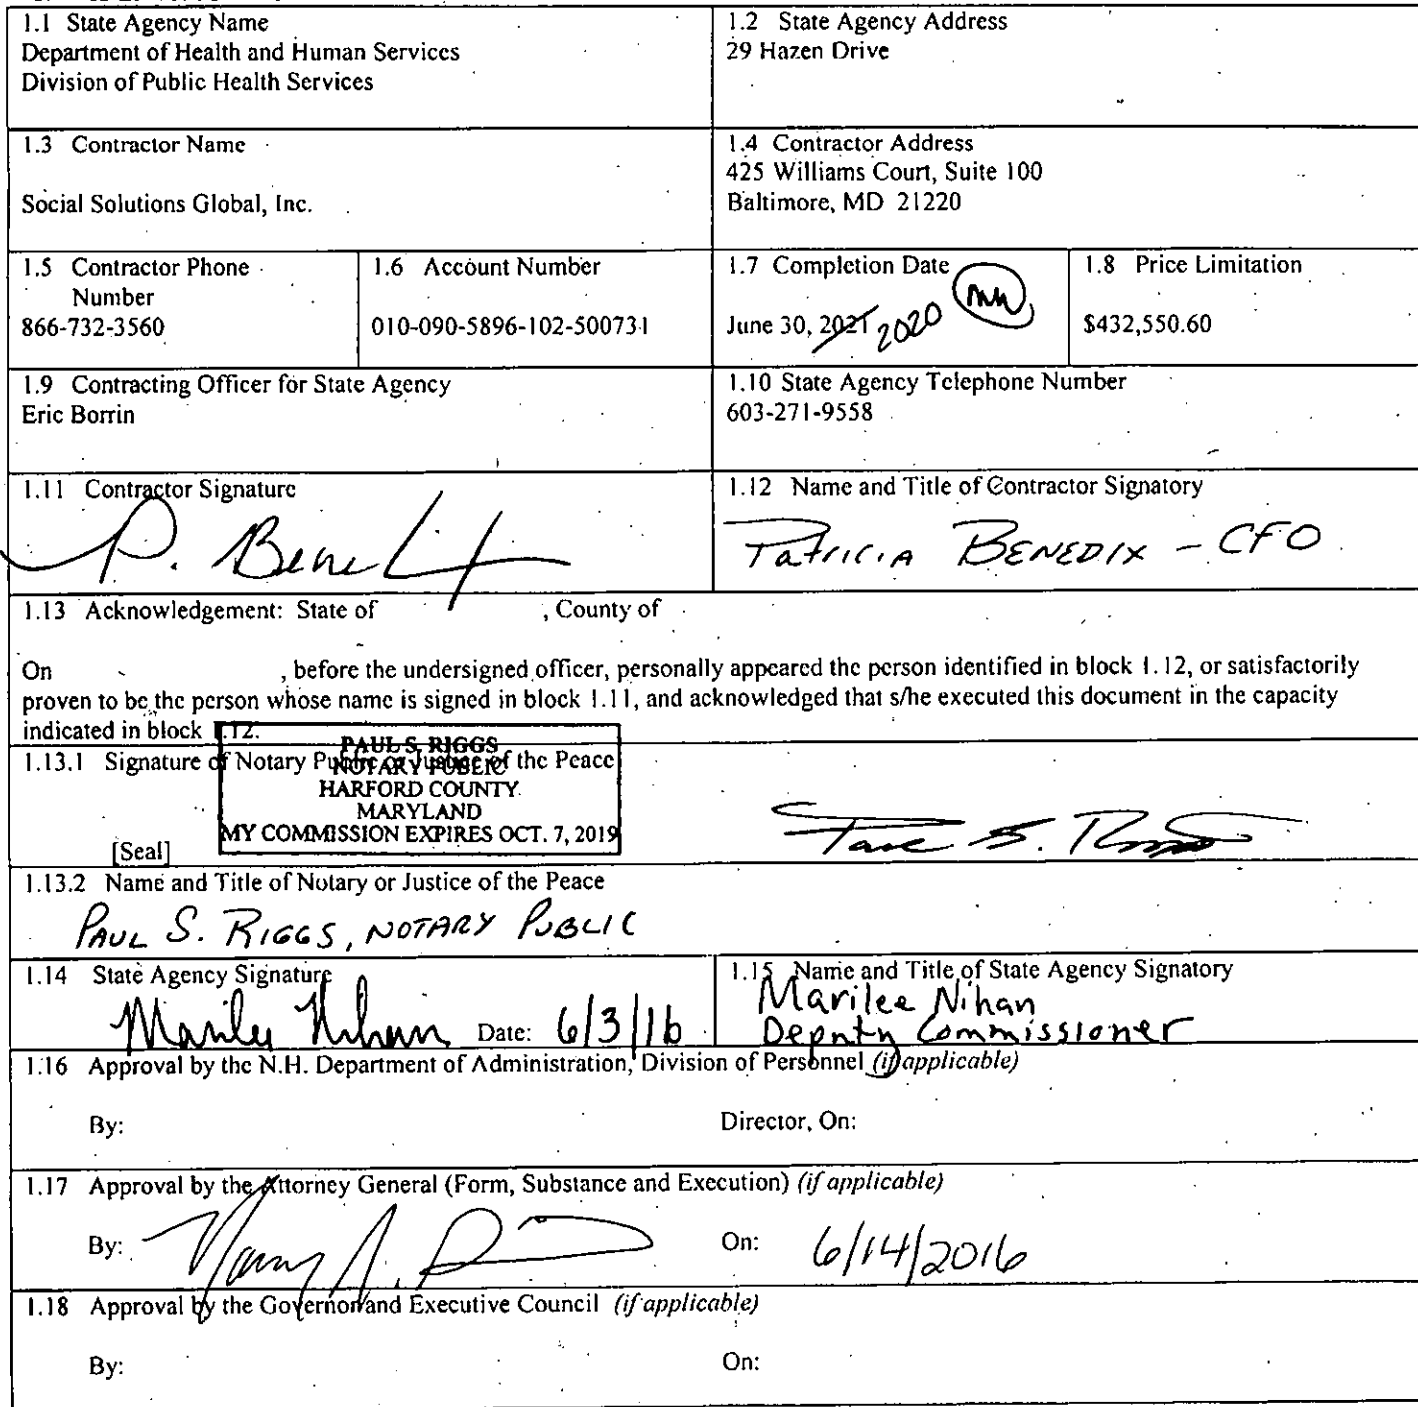 1.1 State Agency Name
Department of Health and Human Services
Division of Public Health Services
1.2 State Agency Address
29 Hazen Drive
1.3 Contractor Name
Social Solutions Global, Inc.
1.4 Contractor Address
425 Williams Court, Suite 100
Baltimore, MD 21220
1.5 Contractor Phone
Number
866-732-3560
1.6 Account Number
010-090-5896-102-500731
1.7 Completion Date
June 30, 2021 2020
1.8 Price Limitation
$432,550.60
1.9 Contracting Officer for State Agency
Eric Borrin
1.10 State Agency Telephone Number
603-271-9558
1.11 Contractor Signature
P. Benedix
1.12 Name and Title of Contractor Signatory
Patricia BENEDIX - CFO
1.13 Acknowledgement: State of , County of
On , before the undersigned officer, personally appeared the person identified in block 1.12, or satisfactorily
proven to be the person whose name is signed in block 1.11, and acknowledged that s/he executed this document in the capacity
indicated in block 1.12.
1.13.1 Signature of Notary Public or Justice of the Peace
PAUL S. RIGGS
NOTARY PUBLIC
HARFORD COUNTY
MARYLAND
MY COMMISSION EXPIRES OCT. 7, 2019
[Seal]
Paul S. Riggs
1.13.2 Name and Title of Notary or Justice of the Peace
PAUL S. RIGGS, NOTARY PUBLIC
1.14 State Agency Signature
Marilee Nihan Date: 6/3/16
1.15 Name and Title of State Agency Signatory
Marilee Nihan
Deputy Commissioner
1.16 Approval by the N.H. Department of Administration, Division of Personnel (if applicable)
By: Director, On:
1.17 Approval by the Attorney General (Form, Substance and Execution) (if applicable)
By: On: 6/14/2016
1.18 Approval by the Governor and Executive Council (if applicable)
By: On: